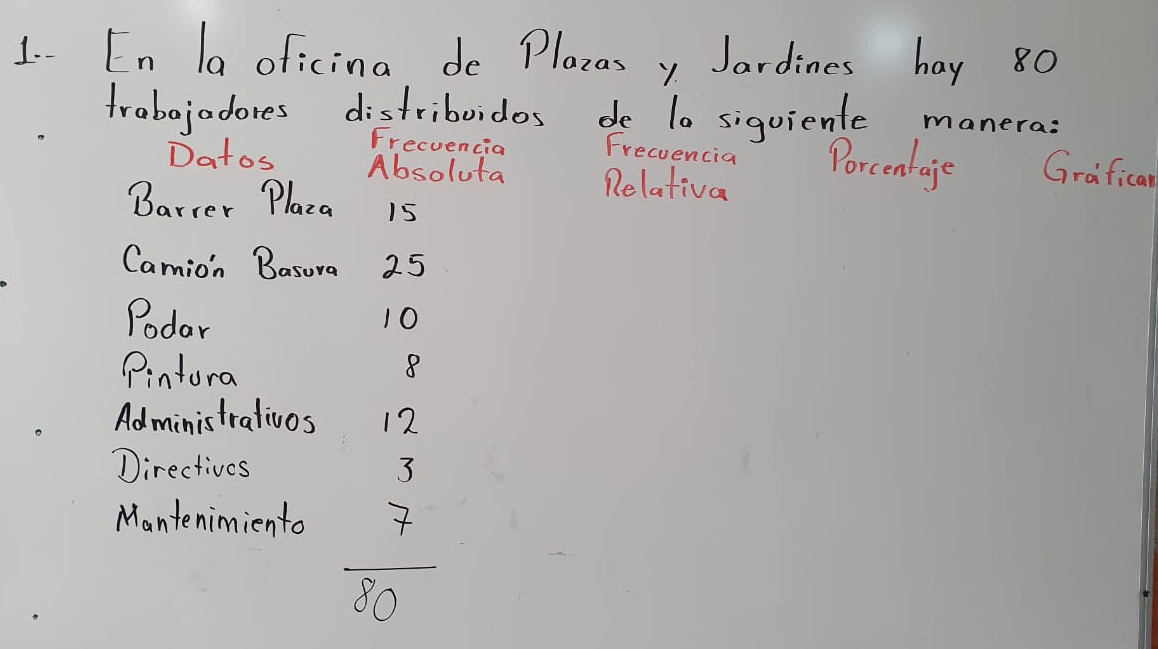 1.- En la oficina de Plazas y Jardines hay 80
trabajadores distribuidos de la siguiente manera:
Datos Frecuencia Absoluta Frecuencia Relativa Porcentaje Gráficar
Barrer Plaza 15
Camión Basura 25
Podar 10
Pintura 8
Administrativos 12
Directivos 3
Mantenimiento 7
80